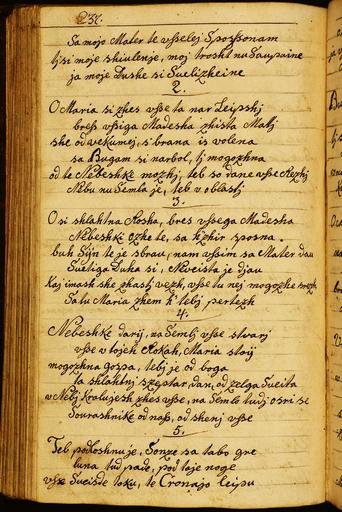 237.
Sa mojo Mater te vsselej Sposssonam
tj si moje shiulenje, moj trosht nu Saupaine
ja moje Dushe si Suelizheine
2.
O Maria si zhes vsse ta nar Leipshj
bress vssiga Madesha zhista Matj
she od vekumej, s'brana is volena
sa Bugam si narbol, tj mogozhna
od te Nebeshke mozhj, teb so dane vsse
Nebu nu Semla je, teb v oblastj
3.
O si shlahtna Rosha, bres vssega Madesha
Nebeshki ozhe te, sa h'zhir sposna.
buh Syn te je sbrau, nam vssim sa Mater dau
Suetiga Duha si, Neveista je djau
Kaj imash she zhastj vezh, vsse tu nej mogozhe
Sa tu Maria zhem k' tebj pertezh
4.
Nebeshke darij, na Semlj vsse stvarj
vsse v tojeh Rokah, Maria stoij
mogozhna gospa, tebj je od boga
ta shlahtnj szeptar, dan, od zelga Sueita
w Nebj Kralujesh zhes vsse, na Semle tudj osri se
Sourashnike od nass, od shenj vsse
5.
Teb podloshnu je, Sonze sa tabo gre
luna tud pade, pod toje noge
vsse Sueisde toku, te Cronajo leipu